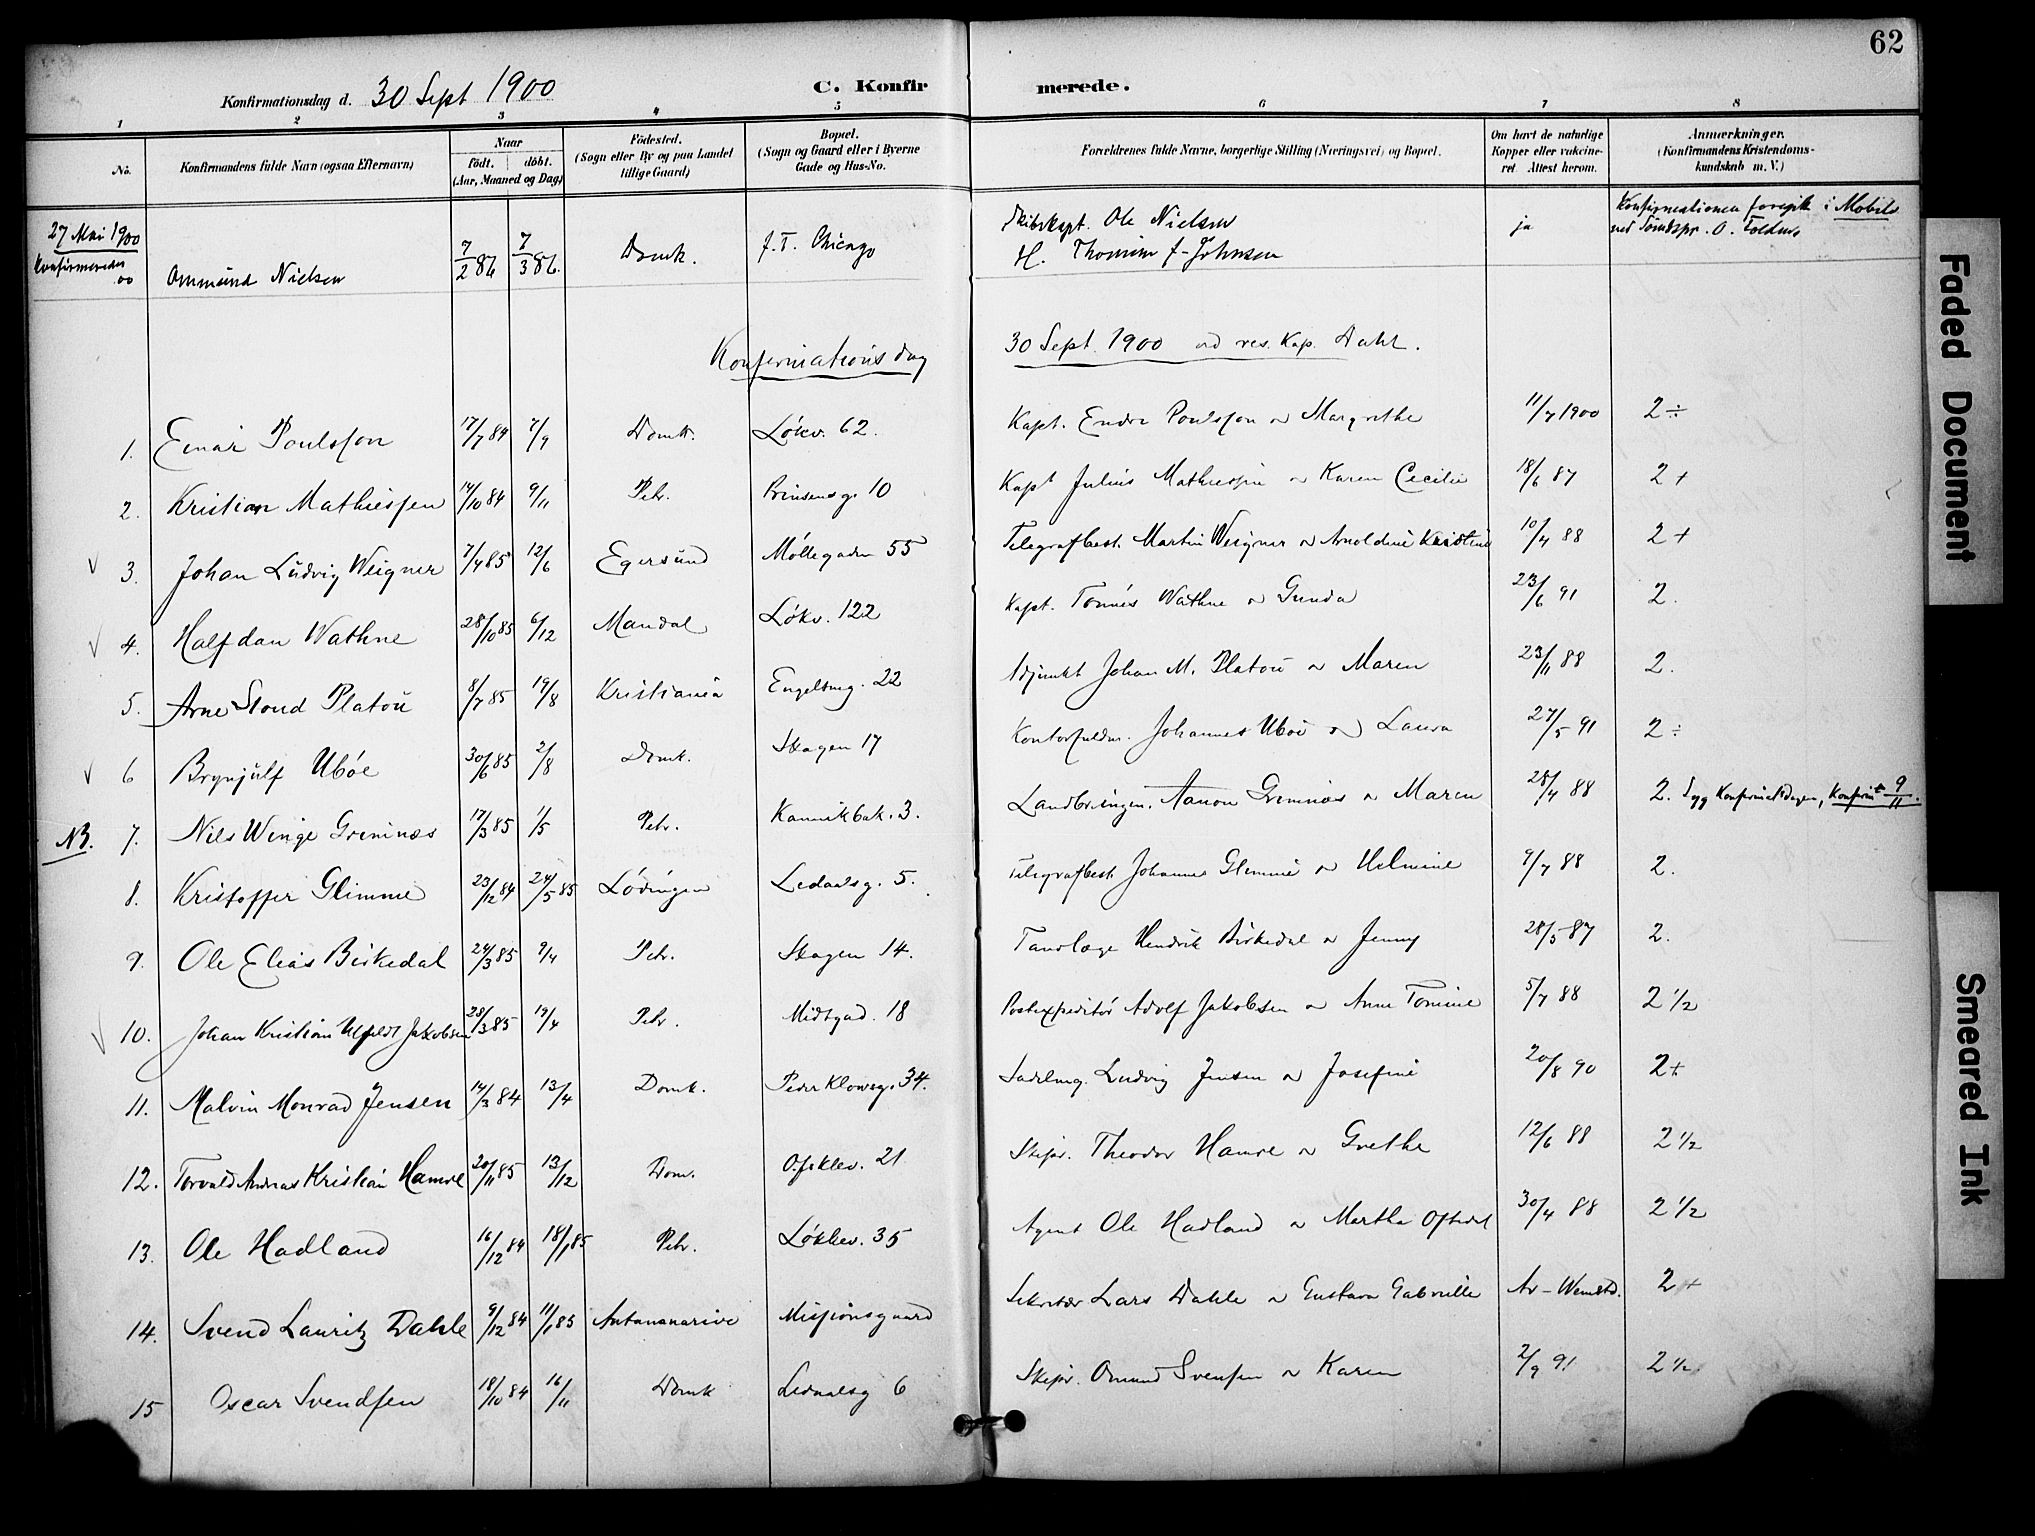 62
Konfirmationsdag d. 30 Sept 1900 C. Konfirmerede.
1 2 3 4 5 6 7 8
No. Konfirmandens fulde Navn (ogsaa Efternavn) Naar födt. döbt. (Aar, Maaned og Dag) Födested. (Sogn eller By og paa Landet tillige Gaard) Bopæl. (Sogn og Gaard eller i Byerne Gade og Hus-No. Forældrenes fulde Navne, borgerlige Stilling (Næringsvei) og Bopæl. Om havt de naturlige Kopper eller vakcineret Attest herom. Anmærkninger. (Konfirmandens Kristendomskundskab m. V.)
27 Mai 1900 Konfirmeredes Ommund Nielsen 7/2 86 7/3 86. Domk. f. T. Chicago Skibskapt. Ole Nielsen ja Konfirmationen foregik i Mobile
H. f. Johnsen
Konfirmationsdag 30 Sept. 1900 ved res. Kap. Dahl.
1. Einar Poulsson 17/7 84 7/9 Domk. Løkv. 62. Kapt. Endre Poulsson o Margrethe 11/7 1900 2 ÷
2. Kristian Mathiessen 14/10 84 9/11 Petr. Prinsensg. 10 Kapt Julius Mathiessen o Karen Cecilie 18/6 87 2 +
3. Johan Ludvig Weigner 7/4 85 12/6 Egersund Møllegaden 55 Telegrafbest. Martin Weigner o Arnoldine Kristine 10/4 88 2 +
4. Halfdan Wathne 28/10 85 6/12 Mandal Løkv. 122 Kapt. Tønnes Wathne o Gunda 23/6 91 2.
5. Arne Stoud Platou 8/7 85 19/8 Kristiania Engelsmg. 22 Adjunkt Johan M. Platou o Maren 23/11 88 2.
6 Brynjulf Ubøe 30/6 85 2/8 Domk. Skagen 17 Kontorfuldm. Johannes Uboe o Laura 27/5 91 2 ÷
NB. 7. Nils Winge Grimnæs 17/3 85 1/5 Petr. Kannikbak. 3. Landbringen. Aanon Grimnæs o Maren 28/4 88 2. Syg Konfirmatsdagen, Konfirmt 9/11.
8. Kristoffer Glimme 23/12 84 24/5 85 Lødingen Ledaalsg. 5. Telegrafbest. Johannes Glimme o Helmine 9/7 88 2.
9. Ole Elias Birkedal 24/3 85 9/4 Petr. Skagen 14. Tandlæge Hendrik Birkedal o Jenny 28/5 87 2.
10. Johan Kristian Ulfeldt Jakobsen 23/3 85 19/4 Petr. Midtgad. 18 Postexpeditør Adolf Jakobsen o Anne Tomine 5/7 88 2 1/2
11. Malvin Monrad Jensen 14/3 84 13/4 Domk. Peder Klowsg. 34. Sadelmg. Ludvig Jensen o Josefine 20/8 90 2+
12. Torvald Andreas Kristian Hamre 20/11 85 13/12 Dom. Ofsklev. 21 Skipr. Theodor Hamre o Grethe 12/6 88 2 1/2
13. Ole Hadland 16/12 84 18/1 85 Petr. Løkkev. 35 Agent Ole Hadland o Martha Oftedal 30/4 88 2 1/2
14. Svend Lauritz Dahle 9/12 84 11/1 85 Antananarivo Missionsgaard Sekretær Lars Dahle o Gustava Gabrielle 2 +
15 Oscar Svendsen 18/10 84 16/11 Domk Ledaalsg 6 Skipr. Omund Svensen o Karen 2/9 91 2 1/2
Faded Document
Smeared Ink